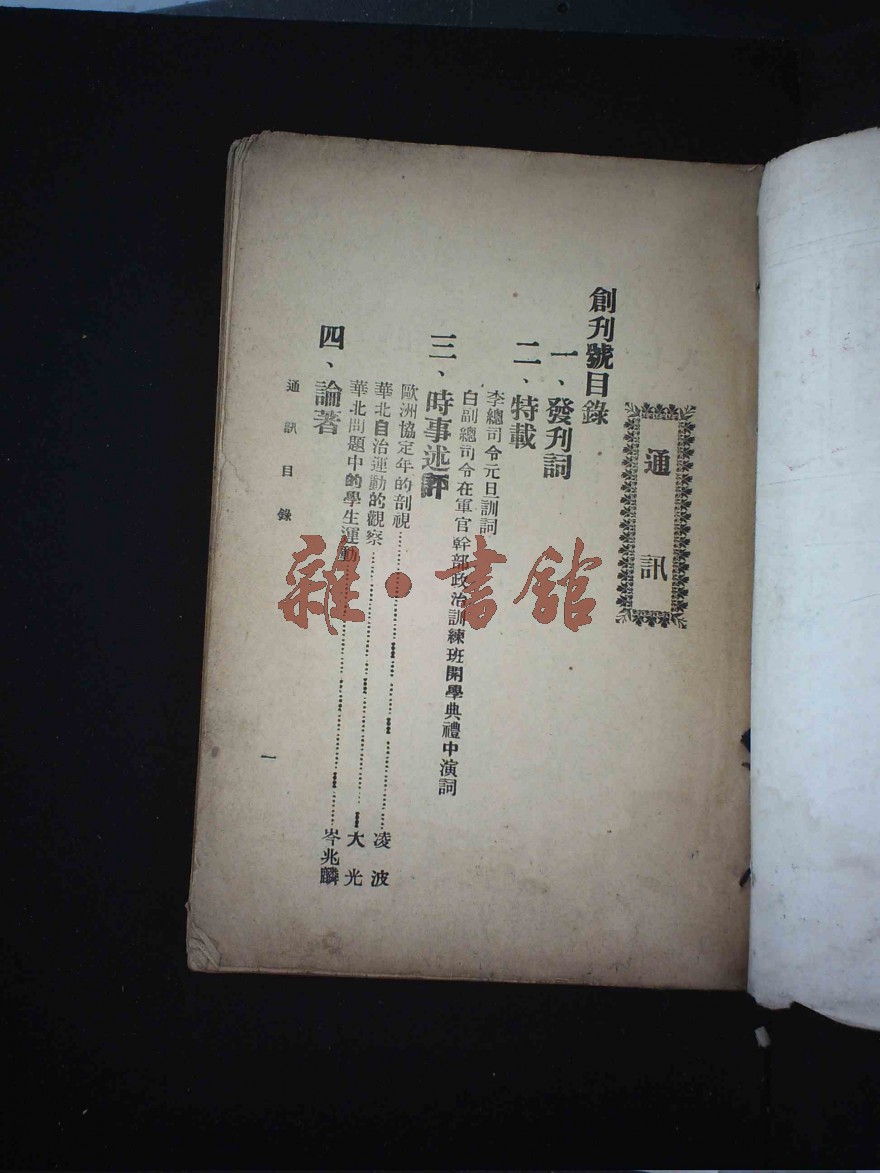 通訊
創刊號目錄
一、發刊詞
二、特載
李總司令元旦訓詞
白副總司令在軍官幹部政治訓練班開學典禮中演詞
三、時事述評
歐洲協定年的剖視……凌波
華北自治運動的觀察……大光
華北問題中的學生運動……岑兆麟
四、論著
通訊目錄
一
雜·書館